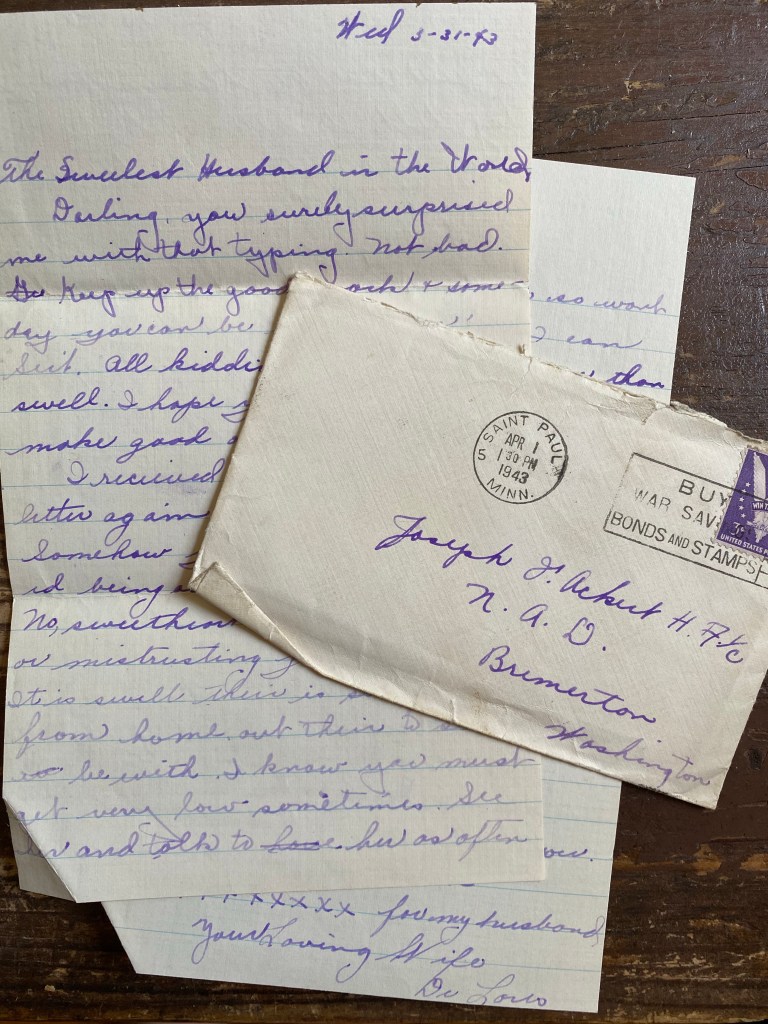 Wed 3-31-43
The Sweetest Husband in the World,
Darling, you surely surprised
me with that typing. Not bad.
Keep up the good & some-
day you can be
All kiddi
swell. I hope y
make good
I recieved
letter again
Somehow
id being
No, sweethear
or mistrusting y
It is swell their is s
from home out their to s
be with. I know you must
get very low sometimes. See
her and talk to her as often
, so work
I can
than
you.
xxxxxx for my husband,
Your Loving Wife
De Lores
SAINT PAUL
APR 1
5 130 PM
1943
MINN.
BUY
WAR SAV
BONDS AND STAMPS
WIN
3¢
UNITED STATES P
Joseph J. Ackert H.A. 1/c
N. A. D.
Bremerton
Washington